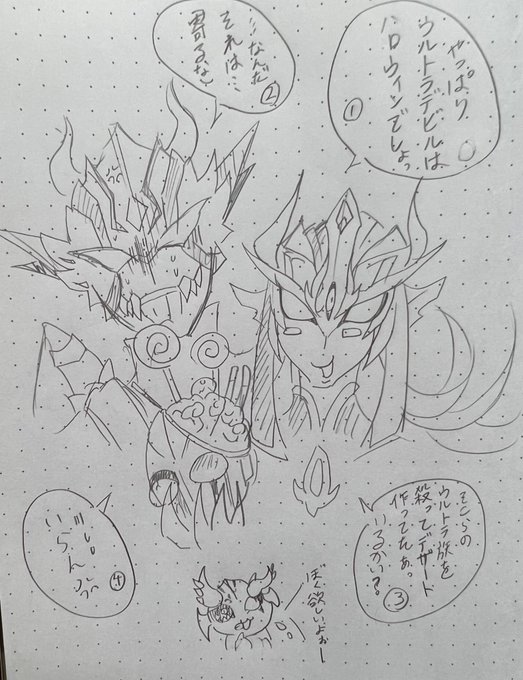 やっぱり
ウルトラデビルは
ハロウィンでしょっ
①
…なんだ
それは…
寄るな
②
そこらの
ウルトラ族を
殺ってデザート
作ってたぁ。
いるかい?
③
いらん
④
ぼく欲しいよぉー